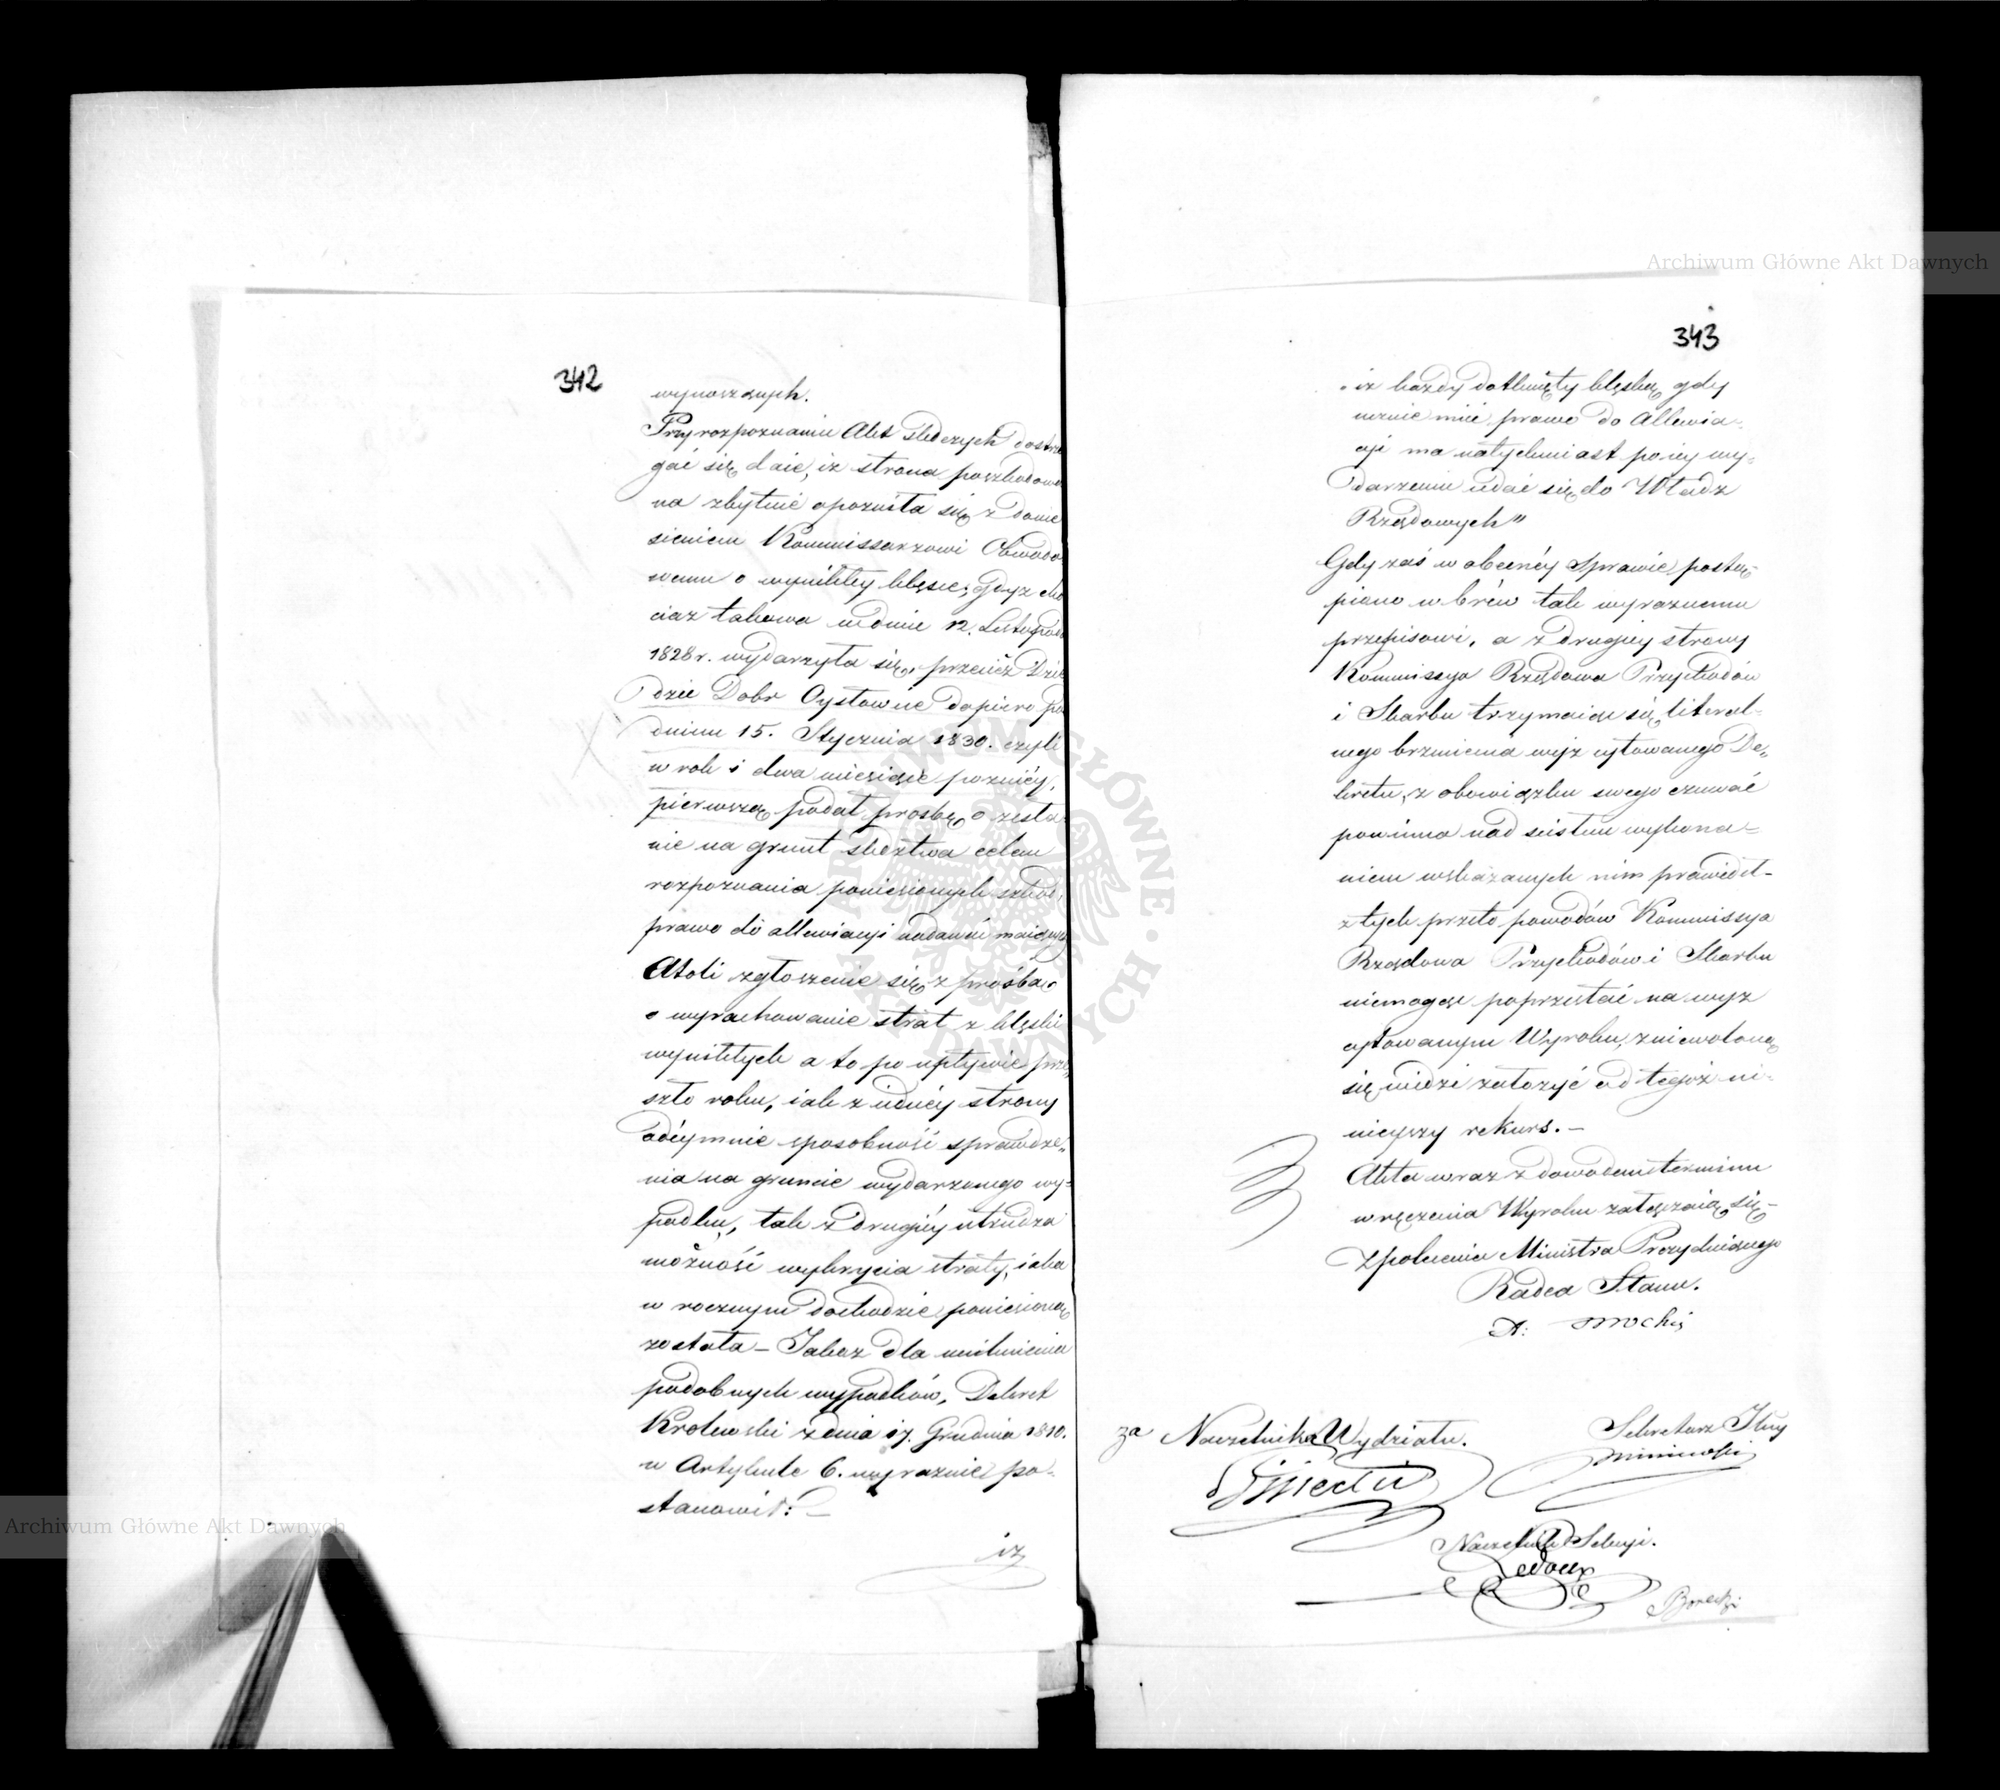 342
wynoszących.
Przy rozpoznaniu Akt śledczych dostrze
gać się daie, iż strona poszkodowa
na zbytnie opoźniła się z donie
sieniem Kommissarzowi Obwodo
wemu o wynikłey klęsce; gdyż cho
ciaż takowa w dniu 12. Listopada
1828 r. wydarzyła się, przecież Dzie
dzic Dobr Cysławne dopiero pod
dniem 15. Stycznia 1830. czyli
w rok i dwa miesiące pozniéy,
pierwszą podał prosbę o zesła
nie na grunt śledztwa celem
rozpoznania poniesionych szkod,
prawo do allewiacyi nadawać maiących
Atoli zgłoszenie się z prośbą
o wyrachowanie strat z klęski
wynikłych a to po upływie prze
szło roku, iak z iednéy strony
odéymuie sposobność sprawdze„
nia na gruncie wydarzonego wy„
padku, tak z drugiéy utrudza
możność wykrycia straty, iaka
w rocznym dochodzie poniesioną
została – Jakoż dla uniknienia
podobnych wypadków, Dekret
Krolewski z dnia 17. Grudnia 1810.
w Artykule 6. wyraznie po„
stanowił: –
iż
343
iż każdy dotknięty klęską, gdy
mieć prawo do Allewia„
cyi ma natychmiast po iey wy„
darzeniu udać się do Władz
Rządowych"
Gdy zaś w obecnéy Sprawie postą„
piono w brew tak wyraznemu
przepisowi, a z drugiéy strony
Kommissya Rządowa Przychodów
i Skarbu trzymaiąc się literal„
nego brzmienia wyż cytowanego De„
kretu, z obowiązku swego czuwać
powinna nad scisłem wykona„
niem wskazanych nim prawideł –
z tych przeto powodów Kommissya
Rządowa Przychodów i Skarbu
niemogąc poprzestać na wyż
cytowanym Wyroku, zniewoloną
się widzi założyć od tegoż ni„
nieyszy rekurs. –
Akta wraz z dowodem terminu
wręczenia Wyroku załączaią się –
Z polecenia Ministra Prezyduiącego
Radca Stanu.
za Naczelnika Wydziału.
Sekretarz Jlny
Naczelnik Sekcyi.
Ledoux
Borecki
Archiwum Główne Akt Dawnych
Archiwum Główne Akt Dawnych
ARCHIWUM GŁÓWNE AKT DAWNYCH